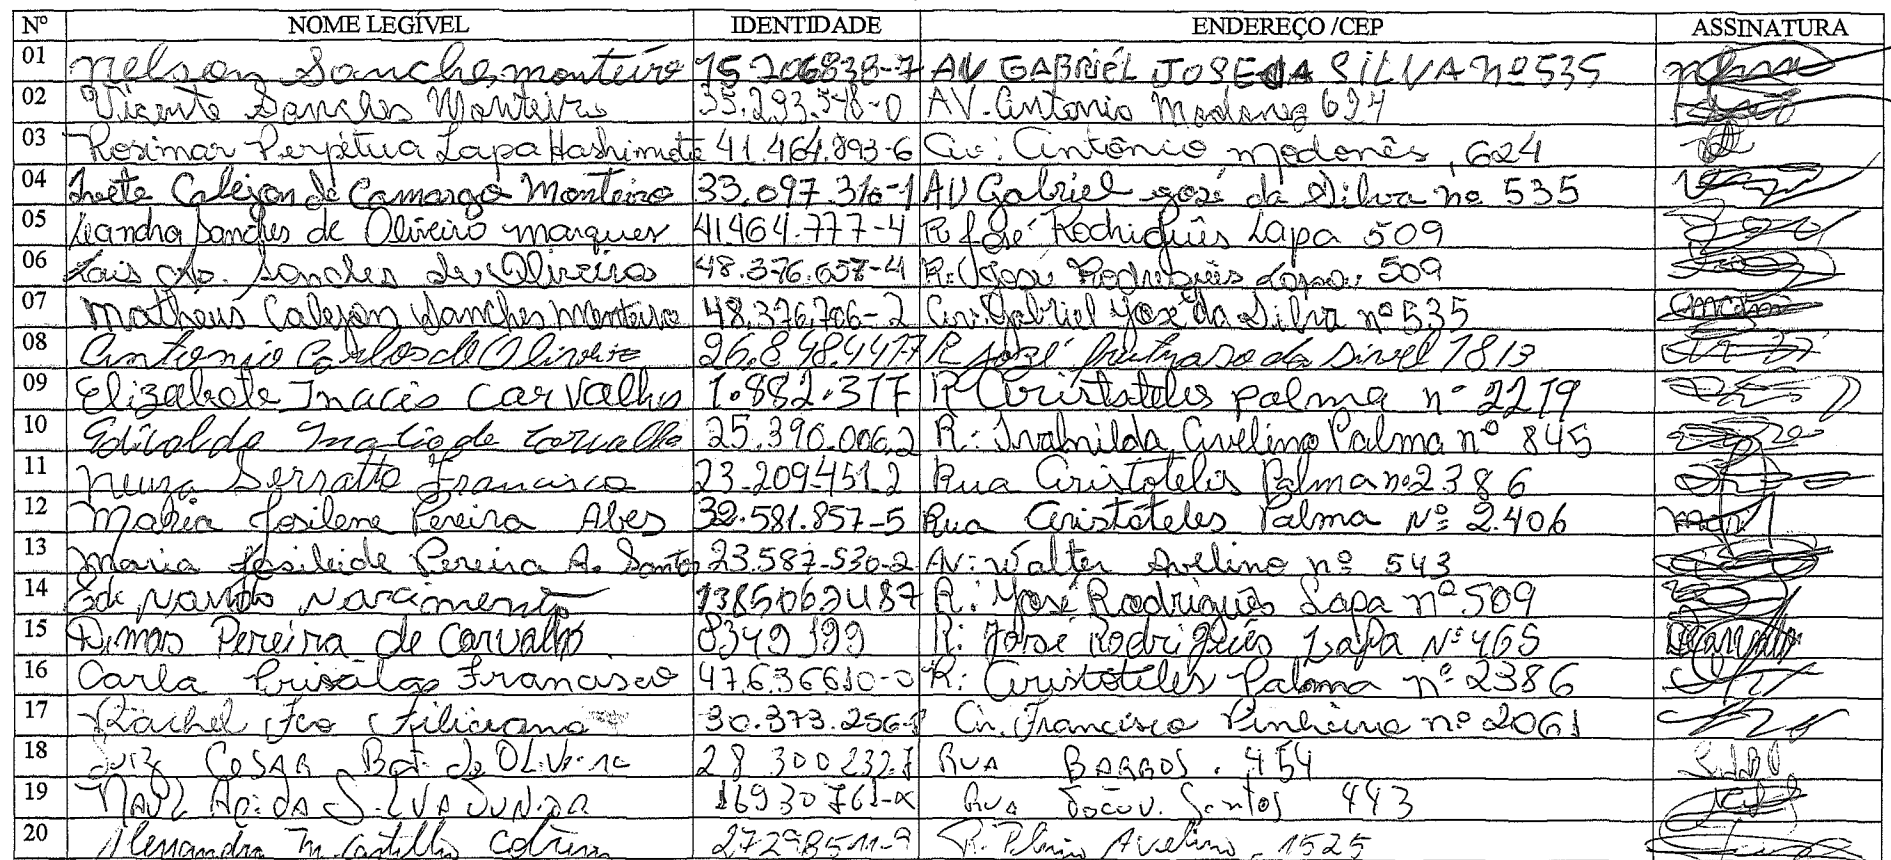 Nº NOME LEGÍVEL IDENTIDADE ENDEREÇO /CEP ASSINATURA
01 Nelson Sanches monteiro 15 206838-7 AV GABRIEL JOSE DA SILVA nº 535
02 Vicente Sanches Monteiro 35.293.548-0 AV. Antonio Modanez 624
03 Rosimar Perpétua Lapa Hashimoto 41.464.893-6 Av: Antônio modonês, 624
04 Ivete Calejon de Camargo Monteiro 33.097.316-1 AV Gabriel josé da Silva nº 535
05 Leandra Sanches de Oliveira marques 41464.777-4 R José Rodrigues Lapa 509
06 Lais Ap. Sanches de Oliveira 48.376.657-4 R: José Rodrigues Lapa, 509
07 Matheus Calejon Sanches Monteiro 48.376.706-2 Av. Gabriel José da Silva nº 535
08 Antonio Carlos de Oliveira 26.848.4417 R José da 1813
09 Elizabete Inacio Carvalho 1.882.317 R Aristoteles palma nº 2219
10 Edivaldo Inacio de Carvalho 25.390.006.2 R: Ivanilda Avelino Palma nº 845
11 Neuza Serratto Francisco 23.2094512 Rua Aristotelis Palma nº 2386
12 Maria Josilene Pereira Alves 32.581.857-5 Rua Aristoteles Palma Nº 2.406
13 Maria Josileide Pereira A. Santos 23.587-530-2 AV: Walter Avelino nº 543
14 Nascimento 1385062487 R: José Rodrigues Lapa nº 509
15 Dimas Pereira de Carvalho 8349399 R: José Rodrigues Lapa Nº 465
16 Carla Francisco 47.636610-0 R: Aristóteles Paloma nº 2386
17 Rachel Fco Filiciano 30.373.256-1 Av. Francisco Pinheiro nº 2061
18 Luiz CESAR Bat. de OLIVEIRA 28 300 232 7 RUA BARROS. 454
19 Ap. da SILVA JUNIOR 16930761-x Rua Santos 443
20 Alessandra M. Castilho Cotrim 27298511-9 R. Plinio Avelino, 1525